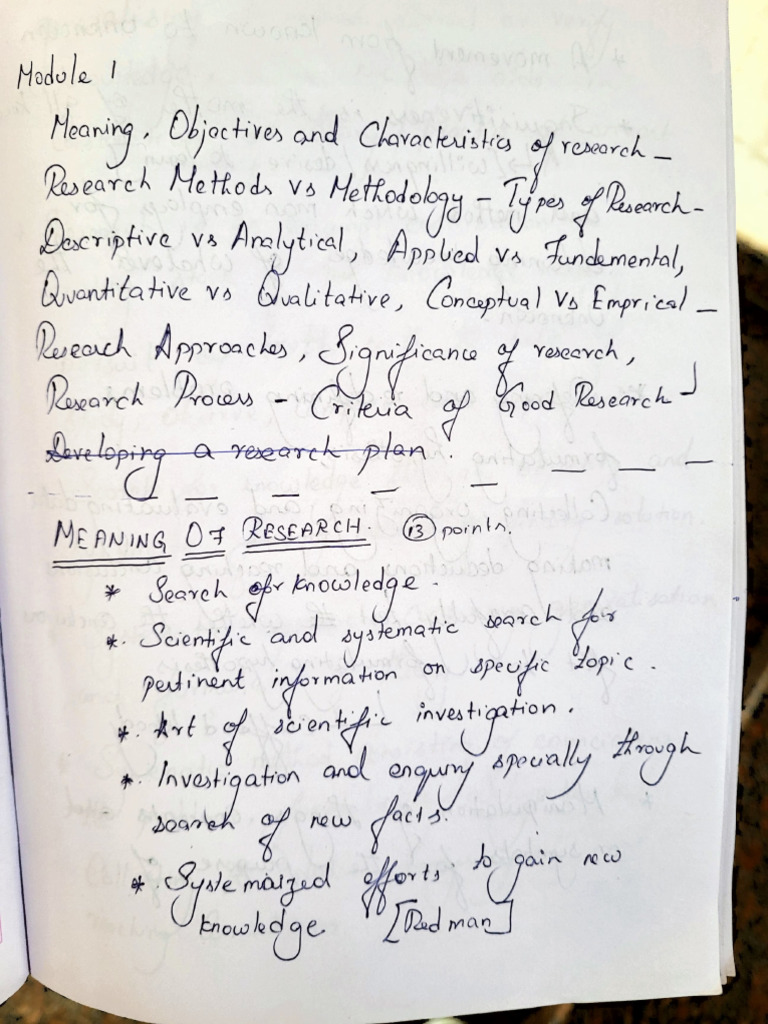 Module 1
Meaning, Objectives and Characteristics of research -
Research Methods vs Methodology - Types of Research -
Descriptive vs Analytical, Applied vs Fundemental,
Quantitative vs Qualitative, Conceptual Vs Emprical -
Research Approaches, Significance of research,
Research Process - Criteria of Good Research
Developing a research plan.
MEANING OF RESEARCH. 13 points.
* Search for knowledge.
*. Scientific and systematic search for
pertinent information on specific topic.
*. Art of scientific investigation.
*. Investigation and enquiry specially through
search of new facts.
*. Systemaized efforts to gain new
knowledge [Redman]